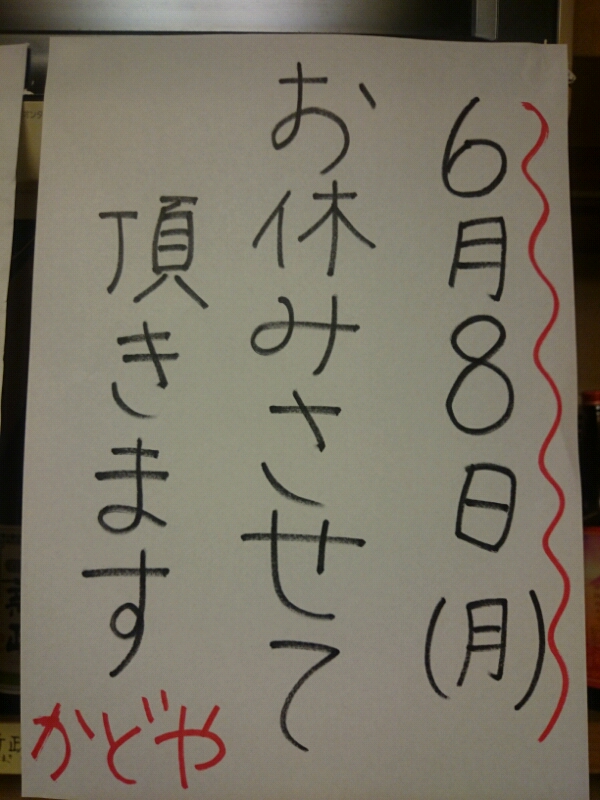 6月8日(月)
お休みさせて
頂きます
かどや